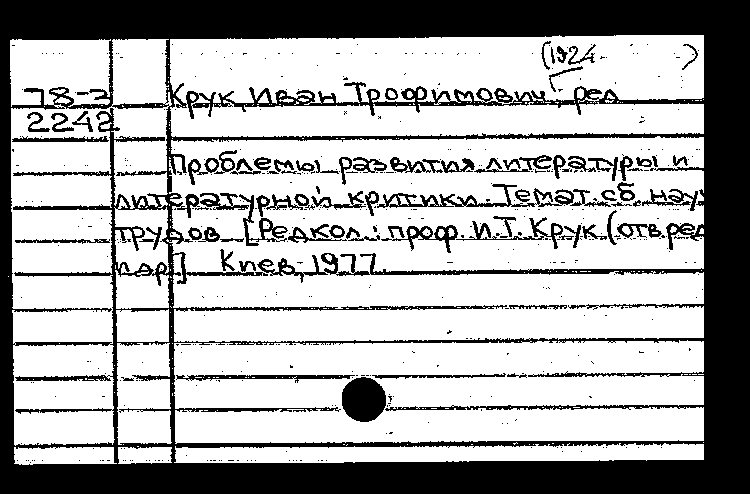 (1924- )
78-3 Крук, Иван Трофимович, ред
2242
Проблемы развития литературы и
литературной критики. Темат. сб. науч
трудов [Редкол.: проф. И.Т. Крук (отв ред
и др.] Киев, 1977.